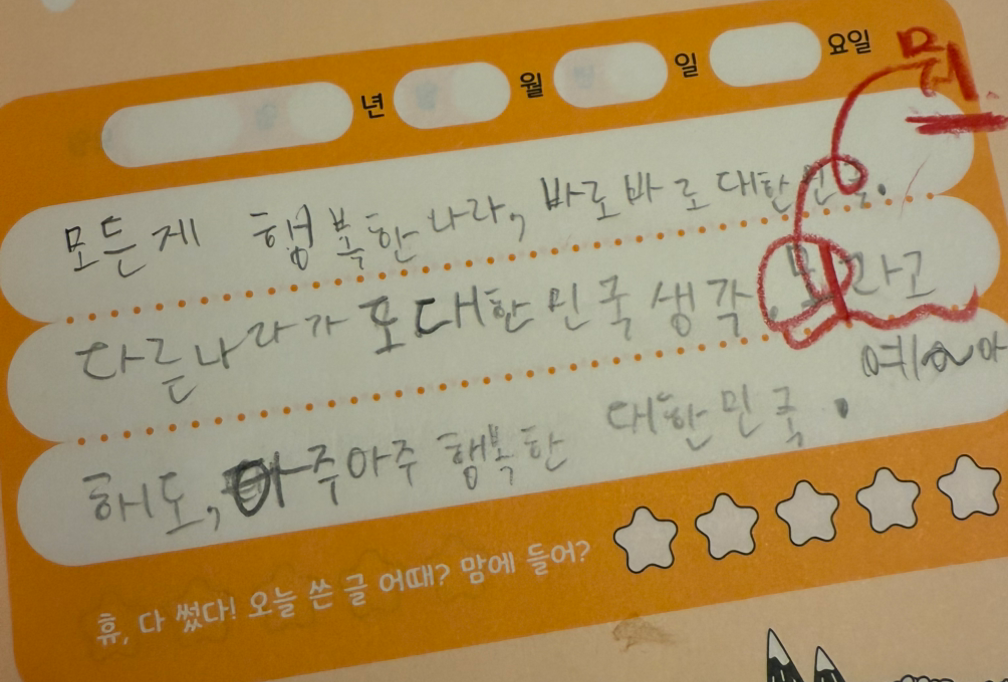 년 월 일 요일
뭐
모든게 행복한나라, 바로바로대한민국.
다른나라가 또대한민국생각, 뭐라고
예은아
해도, 아주아주 행복한 대한민국.
휴, 다 썼다! 오늘 쓴 글 어때? 맘에 들어?